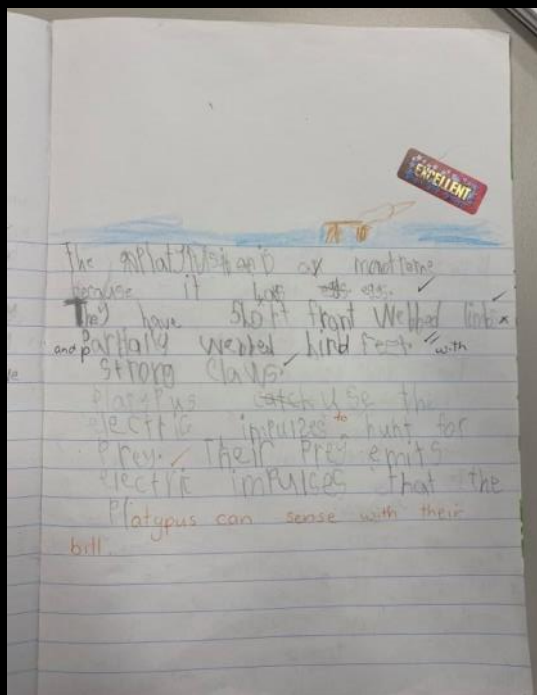 EXCELLENT
The Platypus is a monotreme
because it lays eggs eggs.
They have short front webbed limbs
and Partially webbed hind feet. with
strong claws.
Platypus catch use the
electric impulses to hunt for
Prey. Their Prey emits
electric impulses that the
Platypus can sense with their
bill.